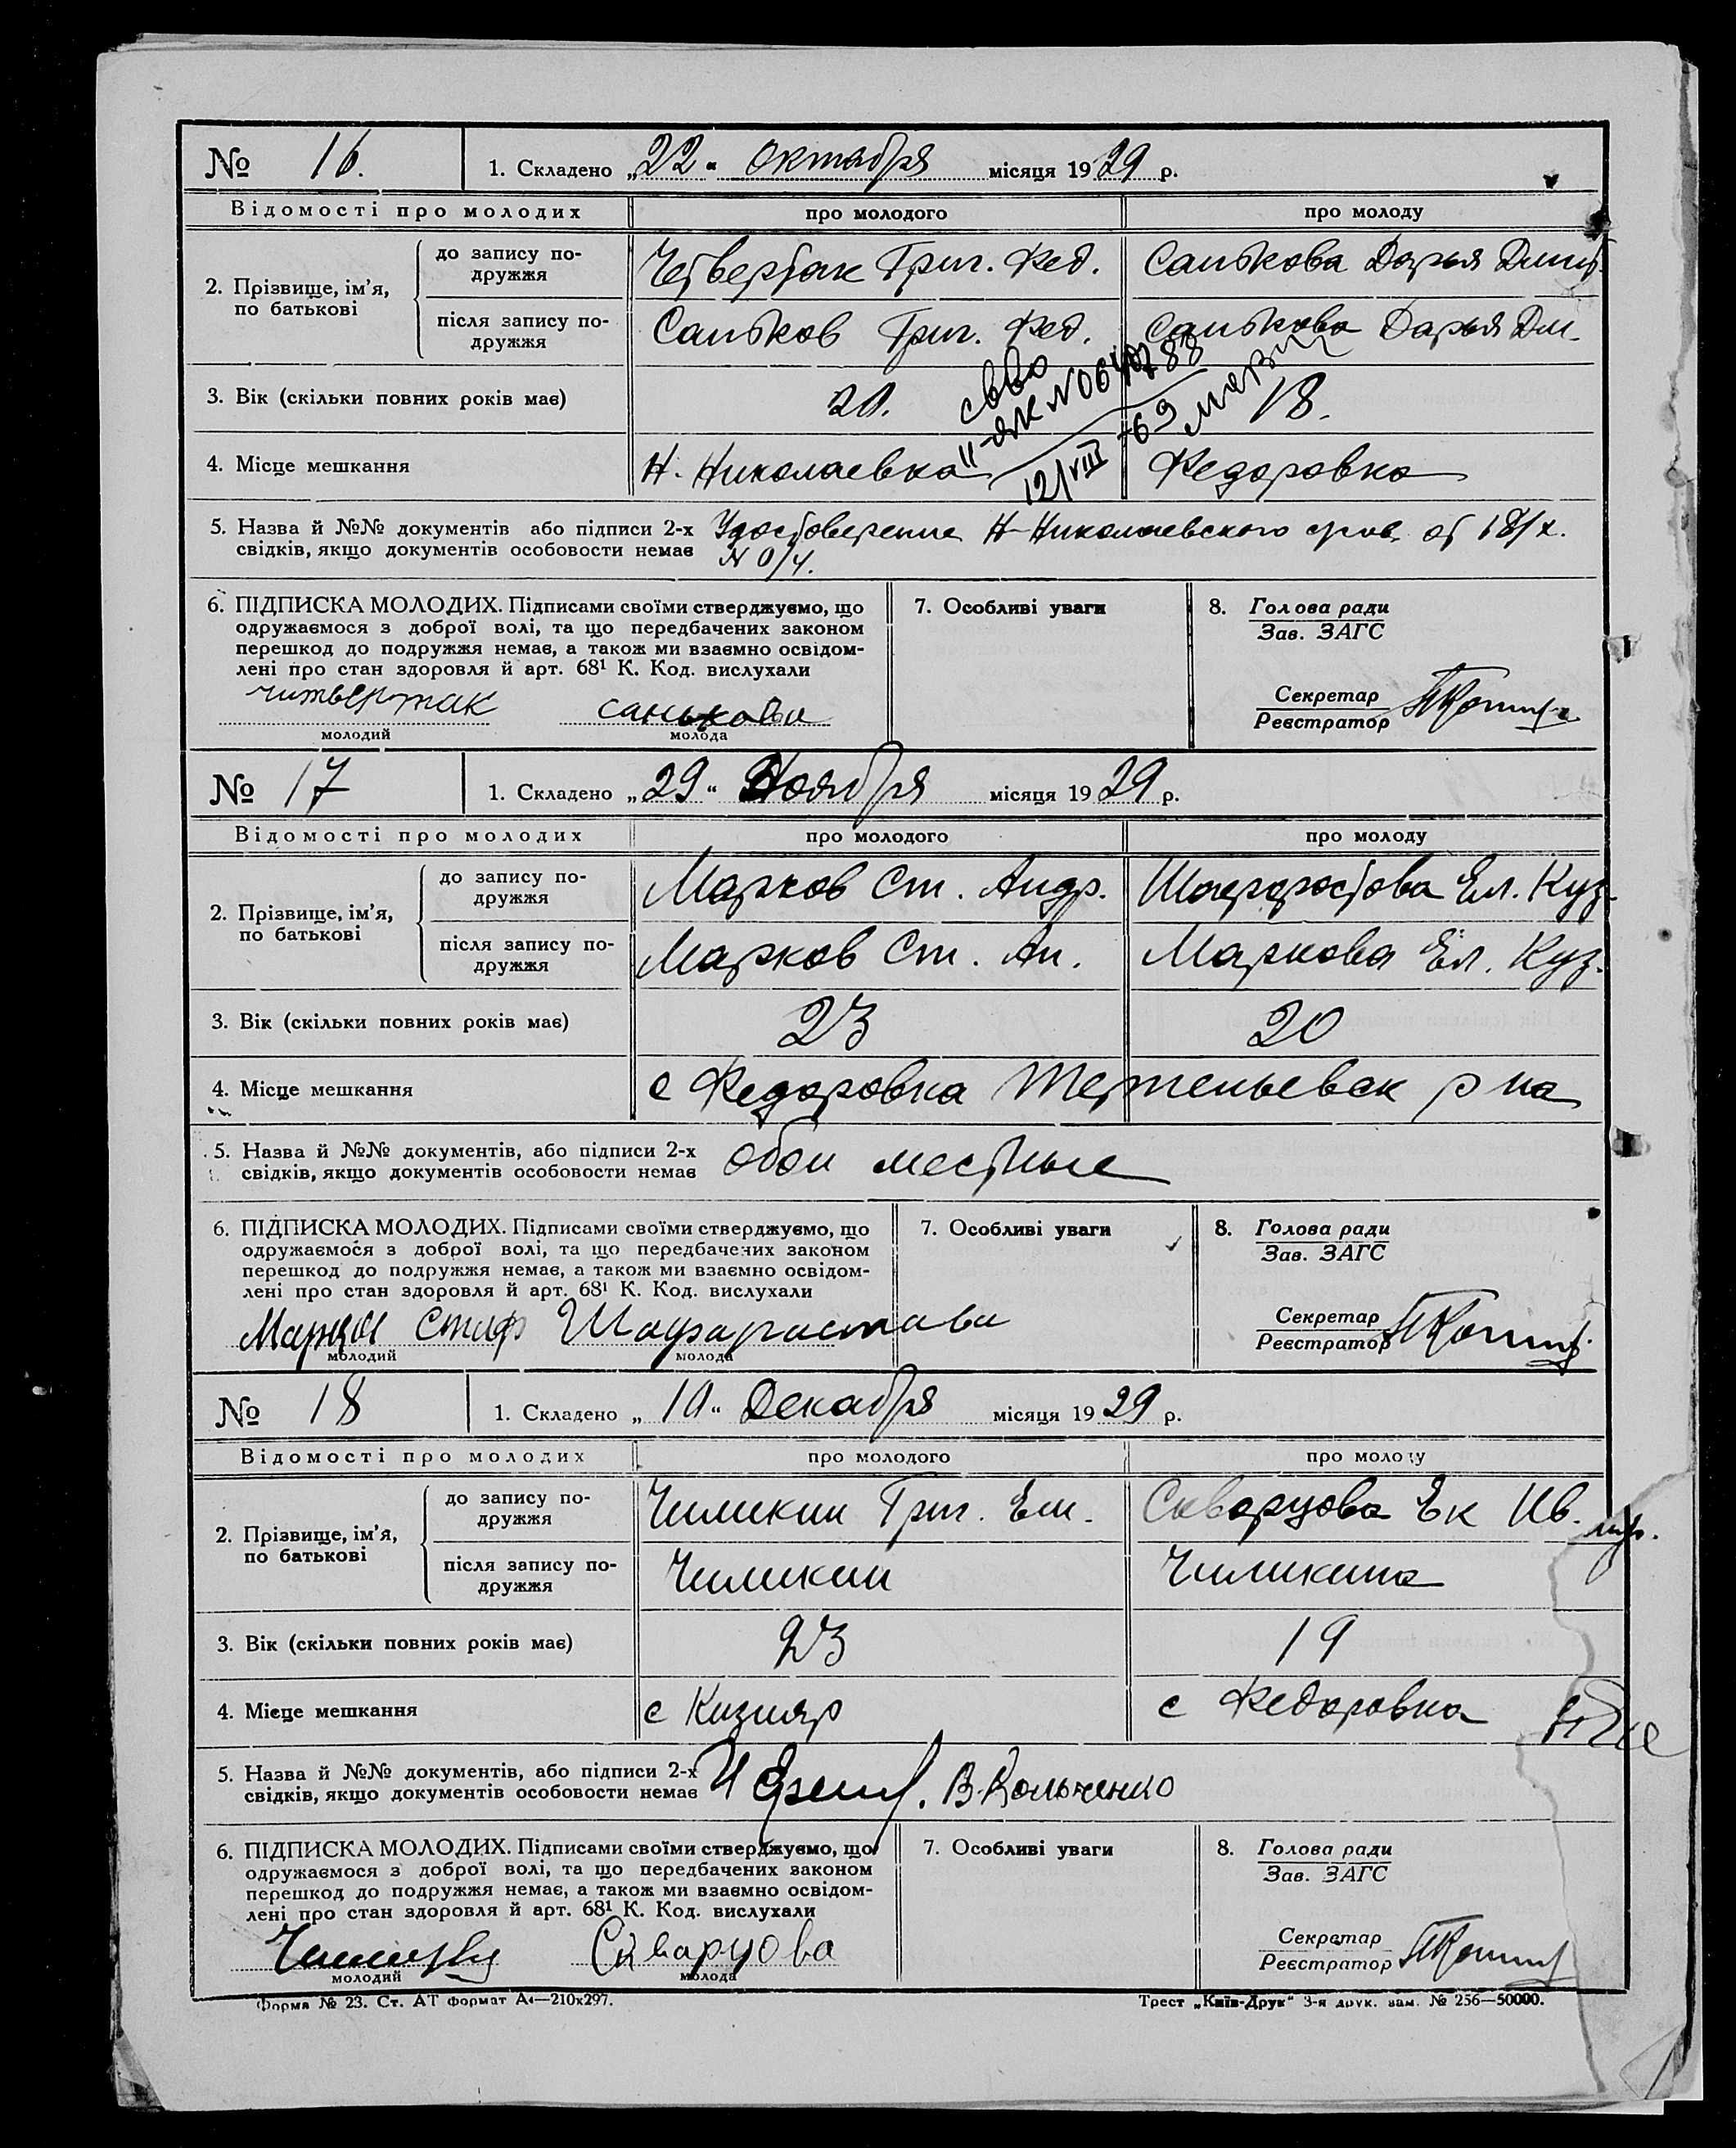 № 16. 1. Складено „22“ октября місяця 1929 р.
Відомості про молодих про молодого про молоду
2. Прізвище, ім’я, по батькові
до запису по-дружжя Четвертак Григ. Фед. Санькова Дарья Дмит.
після запису по-дружжя Саньков Григ. Фед. Санькова Дарья Дм.
3. Вік (скільки повних років має) 20. 18.
4. Місце мешкання Н. Николаевка Федоровка
св-во
II-ЯК №
12/VIII-69
5. Назва й №№ документів або підписи 2-х Удостоверение Н-Николаевского от 18/X.
свідків, якщо документів особовости немає №
6. ПІДПИСКА МОЛОДИХ. Підписами своїми стверджуємо, що
одружаємося з доброї волі, та що передбачених законом
перешкод до подружжя немає, а також ми взаємно освідом-
лені про стан здоровля й арт. 68¹ К. Код. вислухали
читвертак санькова
молодий молода
7. Особливі уваги
8. Голова ради
Зав. ЗАГС
Секретар
Реєстратор
№ 17 1. Складено „29“ Ноября місяця 1929 р.
Відомості про молодих про молодого про молоду
2. Прізвище, ім’я, по батькові
до запису по-дружжя Марков Ст. Андр. Шафоростова Ел. Куз.
після запису по-дружжя Марков Ст. Ан. Маркова Ел. Куз.
3. Вік (скільки повних років має) 23 20
4. Місце мешкання с Федоровка Терпеньевск р на
5. Назва й №№ документів, або підписи 2-х обои местные
свідків, якщо документів особовости немає
6. ПІДПИСКА МОЛОДИХ. Підписами своїми стверджуємо, що
одружаємося з доброї волі, та що передбачених законом
перешкод до подружжя немає, а також ми взаємно освідом-
лені про стан здоровля й арт. 68¹ К. Код. вислухали
Шафарастава
молодий молода
7. Особливі уваги
8. Голова ради
Зав. ЗАГС
Секретар
Реєстратор
№ 18 1. Складено „10“ Декабря місяця 1929 р.
Відомості про молодих про молодого про молоду
2. Прізвище, ім’я, по батькові
до запису по-дружжя Чиликин Григ. Ем. Скворцова Ек Ив.
після запису по-дружжя Чиликин Чиликина
3. Вік (скільки повних років має) 23 19
4. Місце мешкання с Кизияр с Федоровка
5. Назва й №№ документів, або підписи 2-х В. Кольченко
свідків, якщо документів особовости немає
6. ПІДПИСКА МОЛОДИХ. Підписами своїми стверджуємо, що
одружаємося з доброї волі, та що передбачених законом
перешкод до подружжя немає, а також ми взаємно освідом-
лені про стан здоровля й арт. 68¹ К. Код. вислухали
Скварцова
молодий молода
7. Особливі уваги
8. Голова ради
Зав. ЗАГС
Секретар
Реєстратор
Форма № 23. Ст. АТ формат А4—210х297. Трест „Київ-Друк“ 3-я друк. зам. № 256—50000.